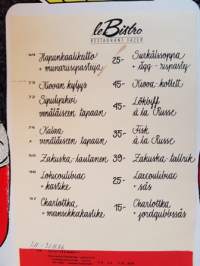 le Bistro
RESTAURANT FAZER
Hapankaalikeitto 25- Surkålssoppa
+ munariisipasteija + ägg-rispastej
Kiovan kyljys 45- Kiova-kotlett
Sipulipihvi 45- Lökbiff
venäläiseen tapaan à la Russe
Kalaa 35- Fisk
venäläiseen tapaan à la Russe
Zakuska-lautanen 39- Zakuska-tallrik
Lohicoulibiac 25- Laxcoulibiac
+ kastike + sås
Charlottka 15- Charlottka
+ mansikkakastike + jordgubbssås